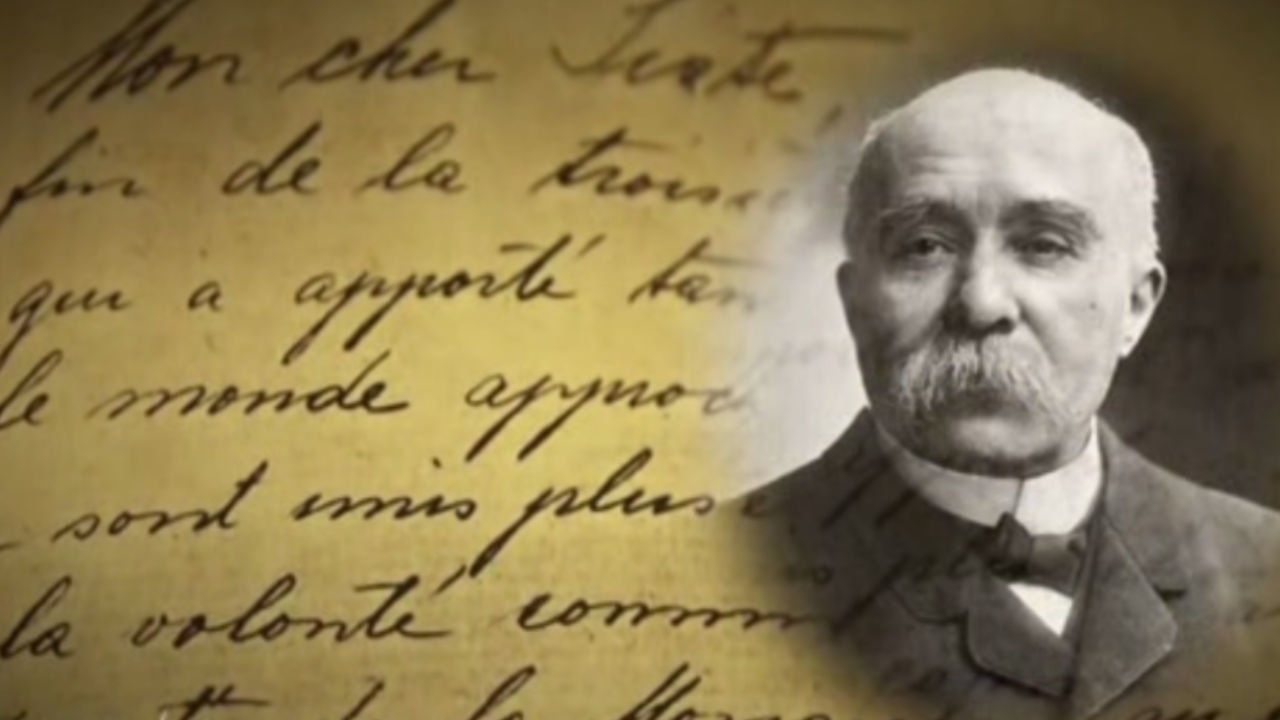 Mon cher Sixte,
fin de la trois
qui a apporté tan
le monde approc
sont unis plus
la volonté comm